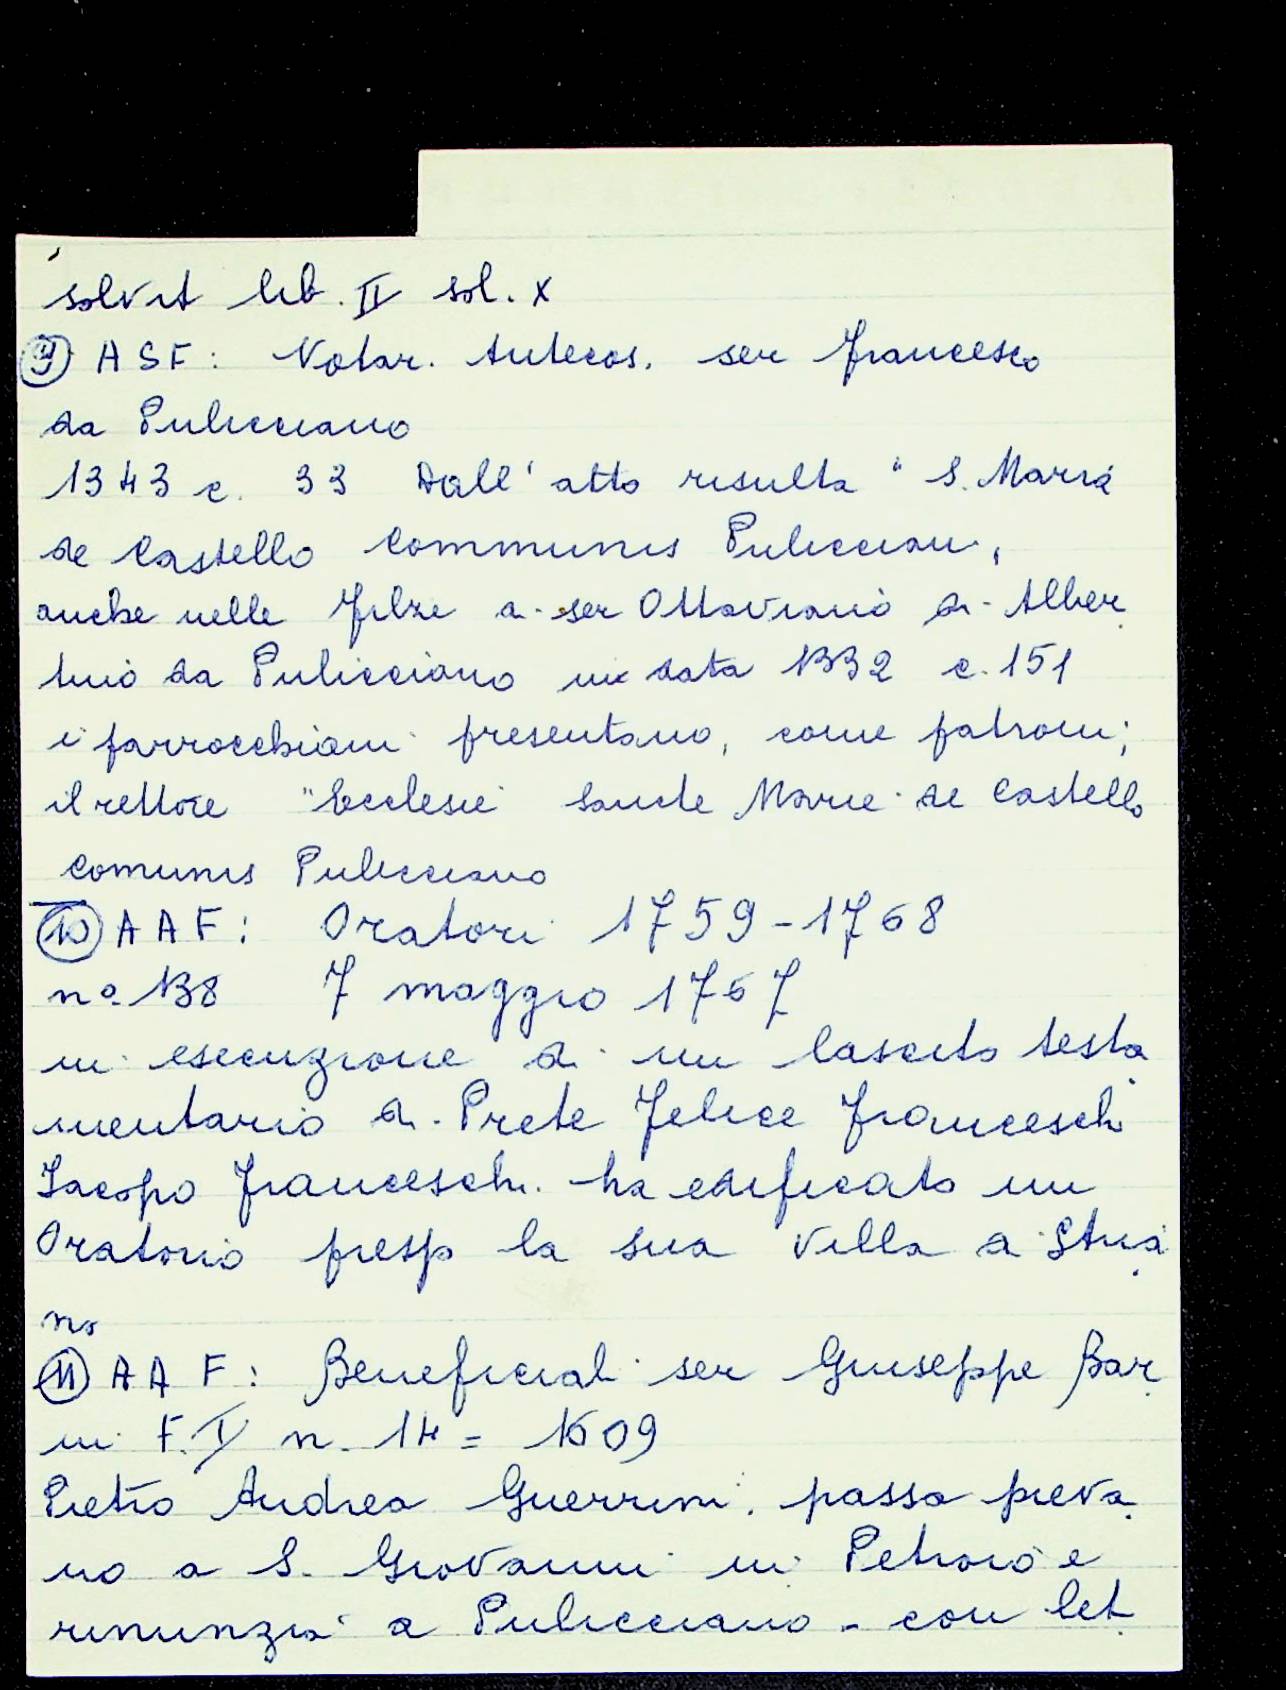 solvit lib. II sol. X
9) ASF: Notar. Antecos. ser Francesco
da Pulicciano
1343 c. 33 Dall' atto risulta " S. Maria
de Castello Communis Puliccian.,
anche nelle filze di ser Ottaviano di Alber
tino da Pulicciano in data 1332 c. 151
i parrocchiani presentano, come patroni,
il rettore "Ecclesie Sancte Marie de Castello
Comunis Pulicciano
10) AAF: Oratori 1759-1768
nº 138 7 maggio 1767
in esecuzione di un lascito testa
mentario di Prete Felice Franceschi
Iacopo Franceschi ha edificato un
Oratorio presso la sua villa a Stria
no
11) AAF: Beneficiali ser Giuseppe Bar
ni F. V n. 14 = 1609
Pietro Andrea Guerrini passa pieva
no a S. Giovanni in Petroio e
rinunzia a Pulicciano - con let